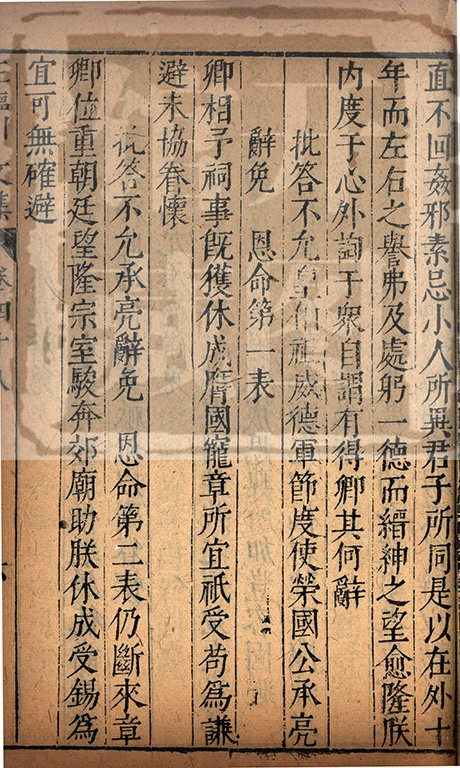 直不回姦邪素忌小人所異君子所同是以在外十
年而左右之譽弗及處躬一德而縉紳之望愈隆朕
内度于心外詢于衆自謂有得卿其何辭
批答不允皇伯祖威德軍節度使榮國公承亮
辭免 恩命第一表
卿相予祠事旣獲休成膺國寵章所宜祇受苟為謙
避未協眷懷
批答不允承亮辭免 恩命第二表仍斷來章
卿位重朝廷望隆宗室駿奔郊廟助朕休成受錫為
宜可無確避
王臨川文集 卷四十八